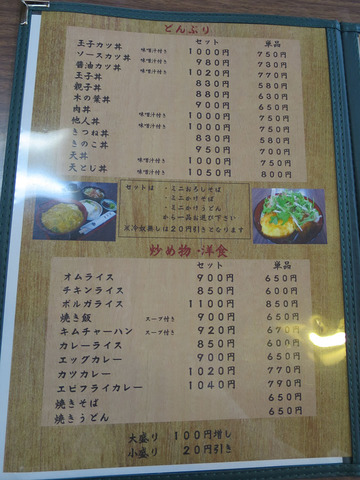 どんぶり
セット 単品
玉子カツ丼 味噌汁付き 1000円 750円
ソースカツ丼 味噌汁付き 980円 730円
醤油カツ丼 味噌汁付き 1020円 770円
玉子丼 830円 580円
親子丼 880円 630円
木の葉丼
肉丼 味噌汁付き 900円 650円
他人丼 味噌汁付き 1000円 750円
きつね丼 830円 580円
きのこ丼
天丼 味噌汁付き 1000円 750円
天とじ丼 味噌汁付き 1050円 800円
セットは ・ミニおろしそば
・ミニかけそば
・ミニかけうどん
から一品お選び下さい
※冷奴無しは20円引きとなります
炒め物・洋食
セット 単品
オムライス 900円 650円
チキンライス 850円 600円
ボルガライス 1100円 850円
焼き飯 スープ付き 900円 650円
キムチャーハン スープ付き 920円 670円
カレーライス 850円 600円
エッグカレー 900円 650円
カツカレー 1020円 770円
エビフライカレー 1040円 790円
焼きそば 650円
焼きうどん 650円
大盛り 100円増し
小盛り 20円引き